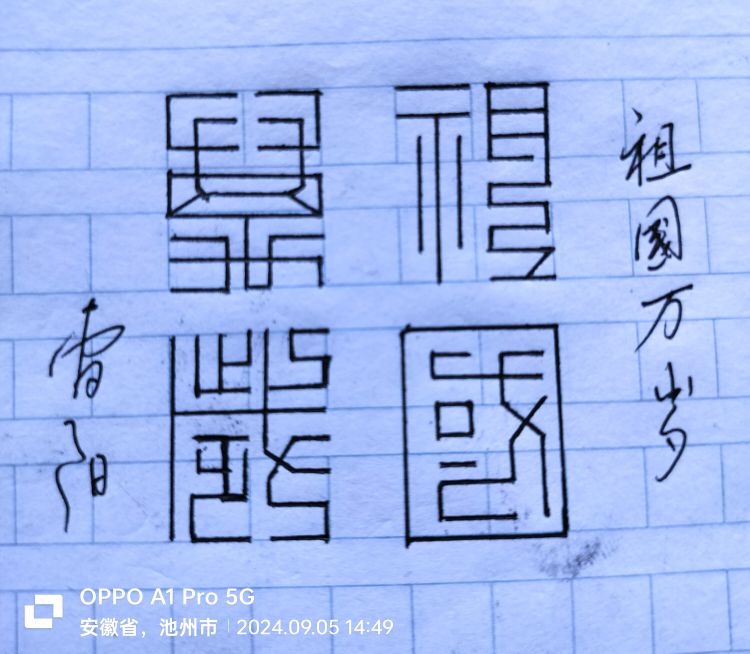 祖國万岁
祖國
萬歲
阳
OPPO A1 Pro 5G
安徽省，池州市 | 2024.09.05 14:49